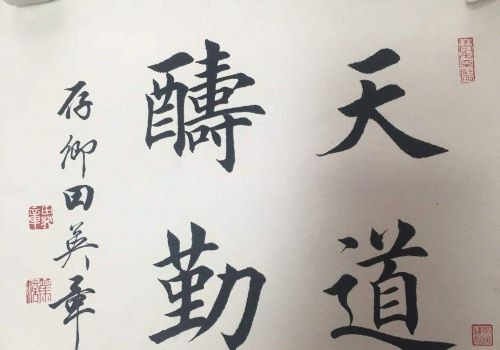 天道
醻勤
存卿田英章